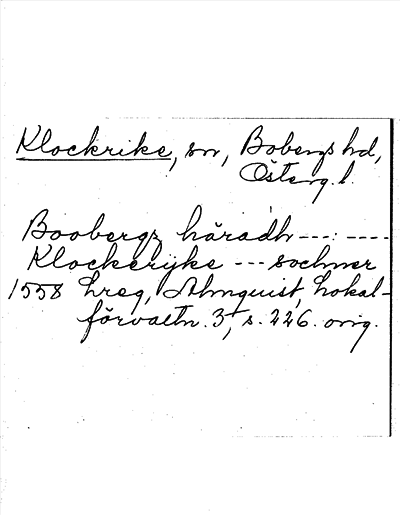 Klockrike, sn, Bobergs hd,
Österg. l.
Boobergz häradh ---:----
Klockerijke --- sochner
1558 Lreg, Almquist, Lokal-
förvaltn. 3, s. 226. orig.